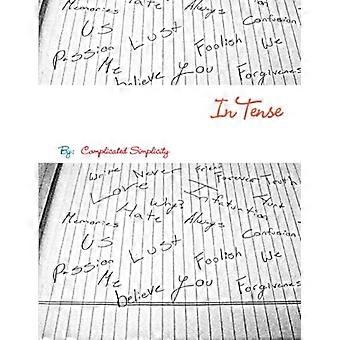 Memories Hate Always
US Lust Confusion
Passion Foolish We
Me believe You Forgiveness
In Tense
By: Complicated Simplicity
Write Never Friend Forever Truth
Love Why? Infatuation
Memories Hate Always Confusion
US Lust
Passion Foolish We
Me believe You Forgiveness